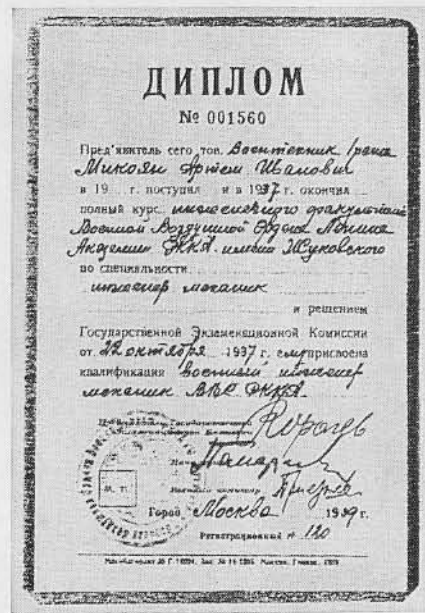 ДИПЛОМ
№ 001560
Пред'явитель сего тов. Воентехник I ранга
Микоян Артем Иванович
в 19 г. поступил и в 1937 г. окончил
полный курс инженерного факультета
Военной Воздушной Ордена Ленина
Академии РККА имени Жуковского
по специальности
инженер механик
и решением
Государственной Экзаменационной Комиссии
от 22 октября 1937 г. ему присвоена
квалификация военный инженер
механик ВВС РККА.
Государственной
М. П.
Военный комиссар
Город Москва 1939 г.
Регистрационный № 120